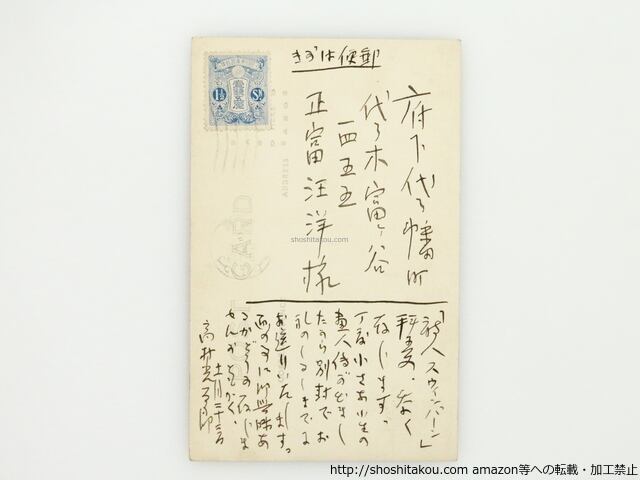 きがは便郵
府下代々幡町
代々木富ヶ谷
一四五五
正富汪洋様
「詩人スウィンバーン」
拝受、忝なく
存じます、
丁度小さな小生の
画人伝ができまし
たから別封でお
礼のしるしまでに
お送りいたします。
画の事に御興味あ
るかどうか存じま
せんがともかく、
十一月二十二日
高村光太郎
1½ Sn
CARD
ADDRESS
shoshitakou.com
http://shoshitakou.com amazon等への転載・加工禁止